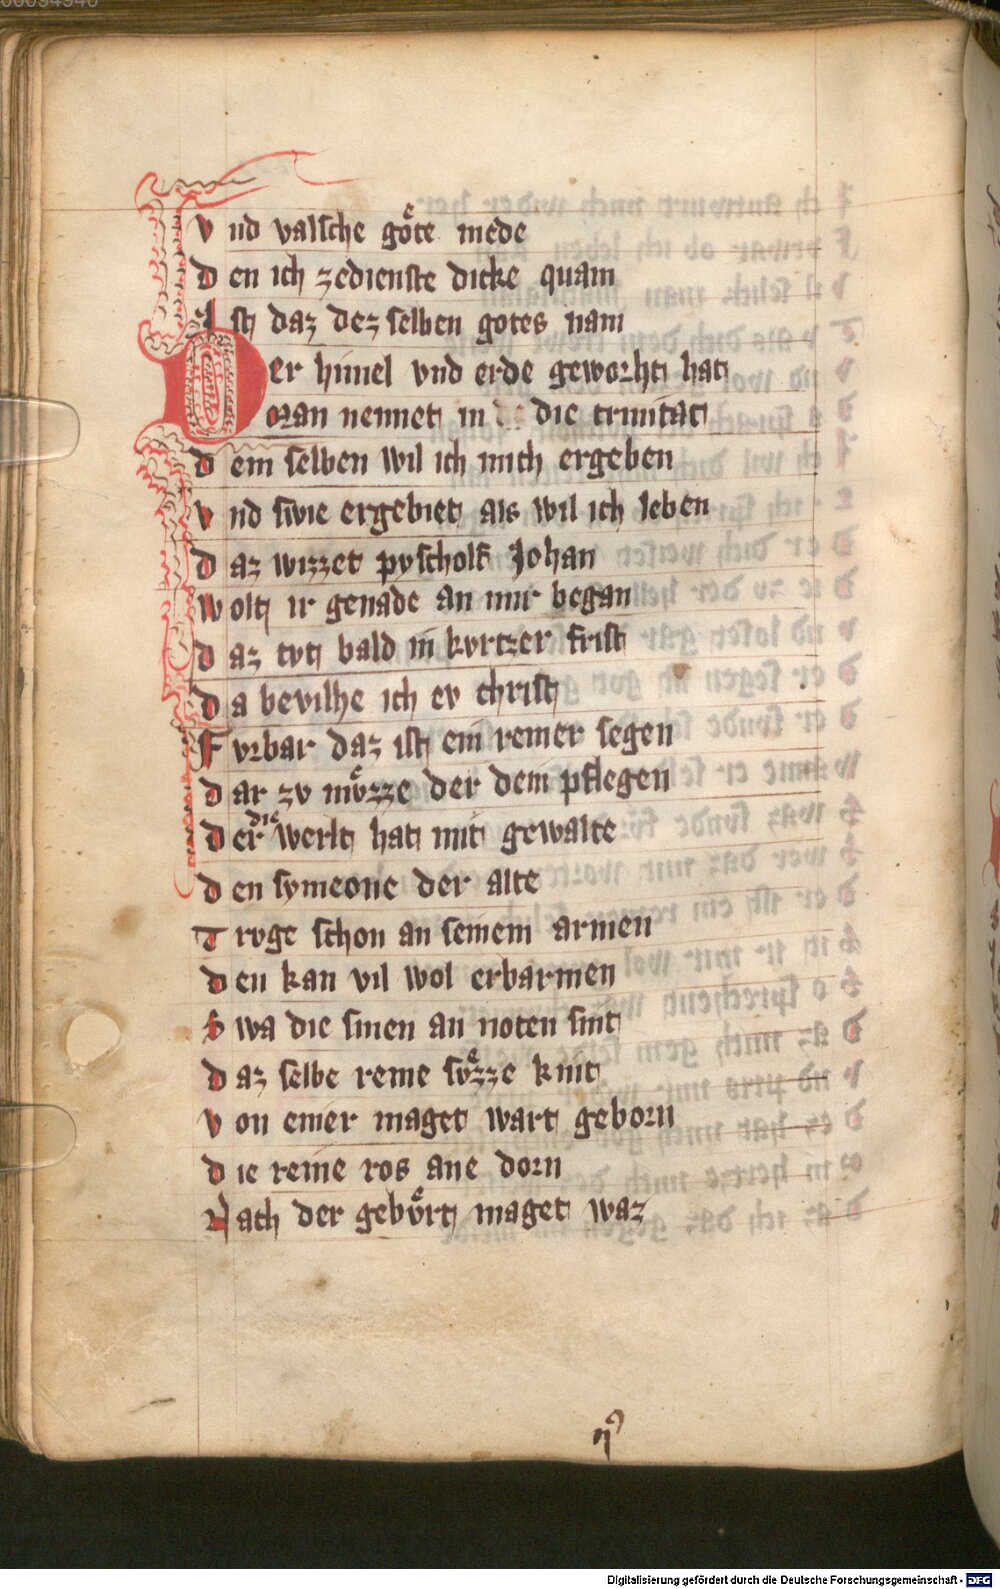 00094940
Vnd valsche goͤte mede
Den ich zedienste dicke quam
Ist daz dez selben gotes nam
Der himel vnd erde geworht hat
Man nennet in die trinitat
Dem selben wil ich mich ergeben
Vnd swie ergebiet als wil ich leben
Daz wizzet pyscholf Johan
Wolt ir genade an mir began
Daz tvt bald in kvrtzer frist
Da bevilhe ich ev christ
Fvrbar daz ist ein reiner segen
Dar zv mvͤzze der dem pflegen
Der die werlt hat mit gewalte
Den symeone der alte
Trvge schon an seinem armen
Den kan vil wol erbarmen
Swa die sinen an noten sint
Daz selbe reine svͤzze kint
Von einer maget wart geborn
Die reine ros ane dorn
Nach der gebvͤrt maget waz
Digitalisierung gefördert durch die Deutsche Forschungsgemeinschaft - DFG